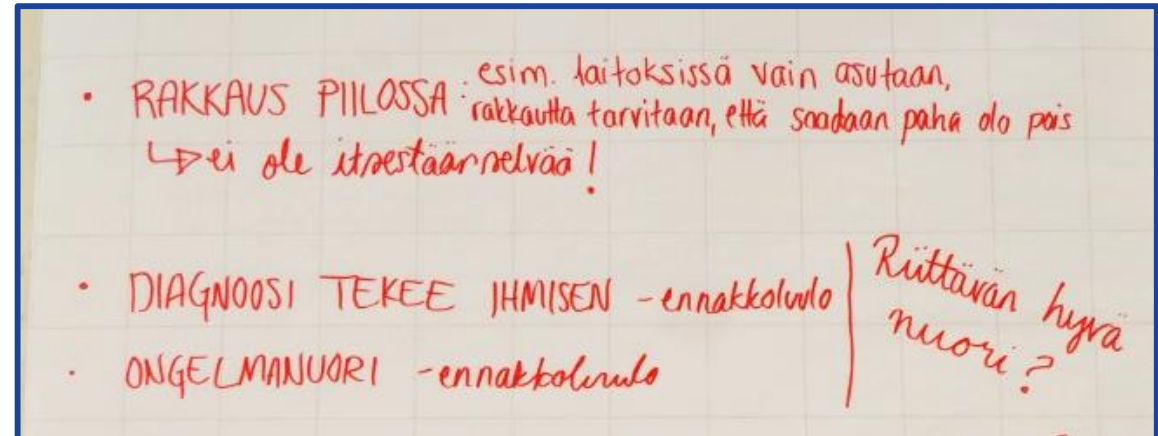 • RAKKAUS PIILOSSA: esim. laitoksissä vain asutaan,
rakkautta tarvitaan, että saadaan paha olo pois
↳ ei ole itsestäänselvää!
• DIAGNOOSI TEKEE IHMISEN - ennakkoluulo
• ONGELMANUORI - ennakkoluulo
Riittävän hyvä
nuori?